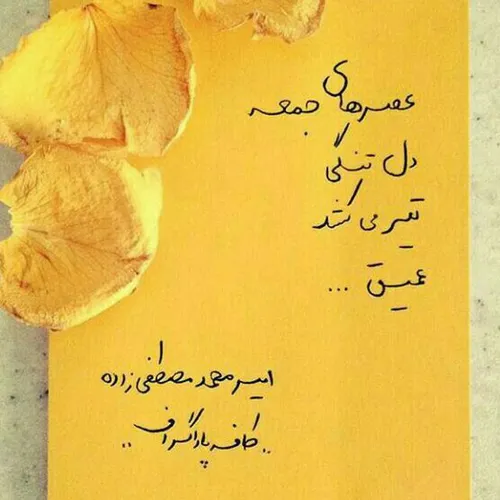 عصرهای جمعه
دل تنگی
تیر می کشد
عمیق ...
امیر محمد مصطفی زاده
"کافه پاراگراف"